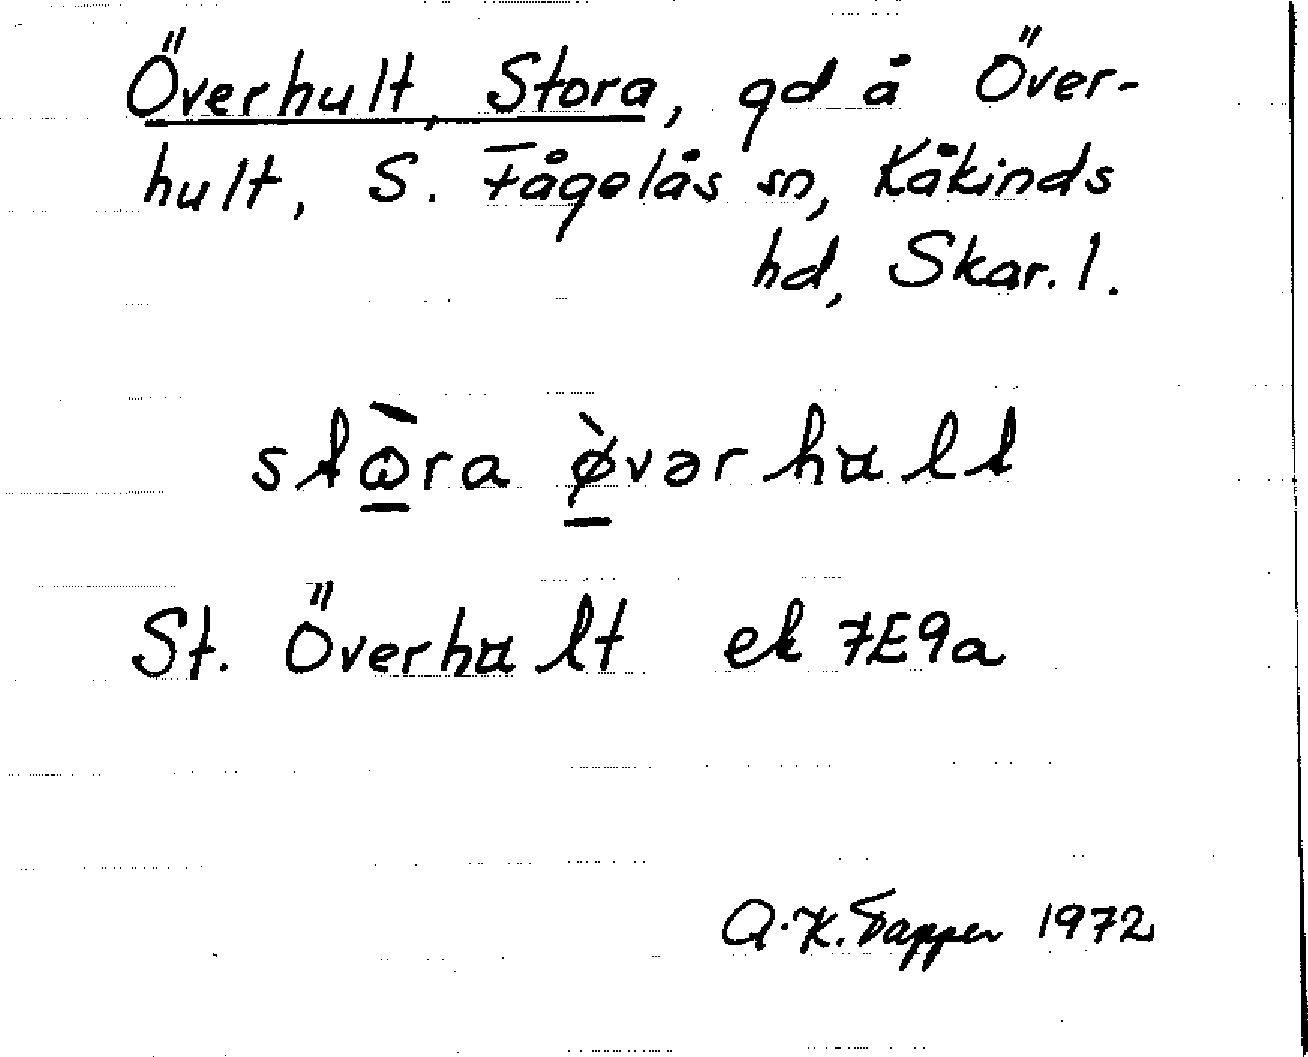 Överhult, Stora, gd å Över-
hult, S. Fågelås sn, Kåkinds
hd, Skar. l.
stὼ̱ra ø̱̀vərhult
St. Överhult ek 7E9a
A.K. Tapper 1972